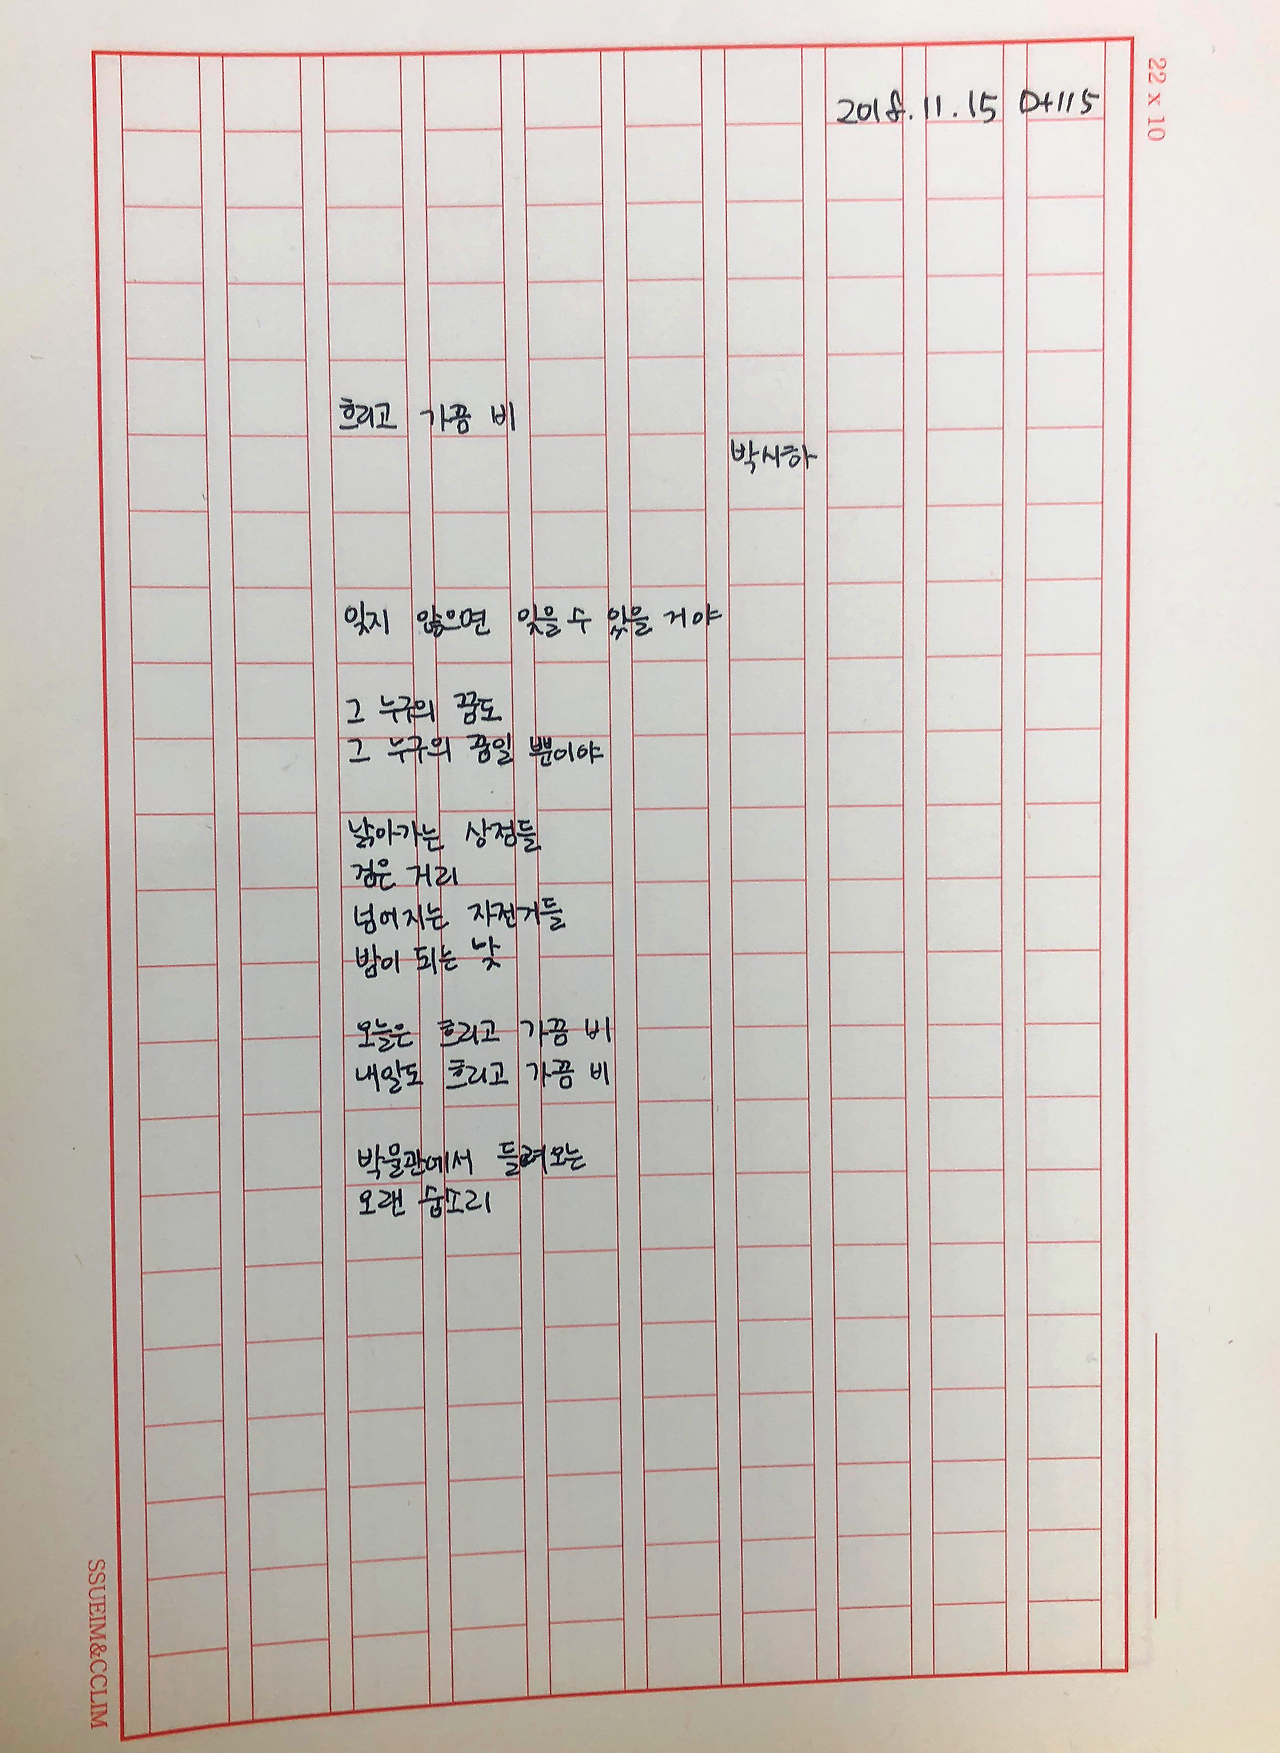 22 x 10
2018.11.15 D+115
흐리고 가끔 비
박시하
잊지 않으면 잊을 수 있을 거야
그 누구의 꿈도
그 누구의 꿈일 뿐이야
낡아가는 상점들
검은 거리
넘어지는 자전거들
밤이 되는 낮
오늘은 흐리고 가끔 비
내일도 흐리고 가끔 비
박물관에서 들려오는
오랜 숨소리
SSUEIM&CCLIM